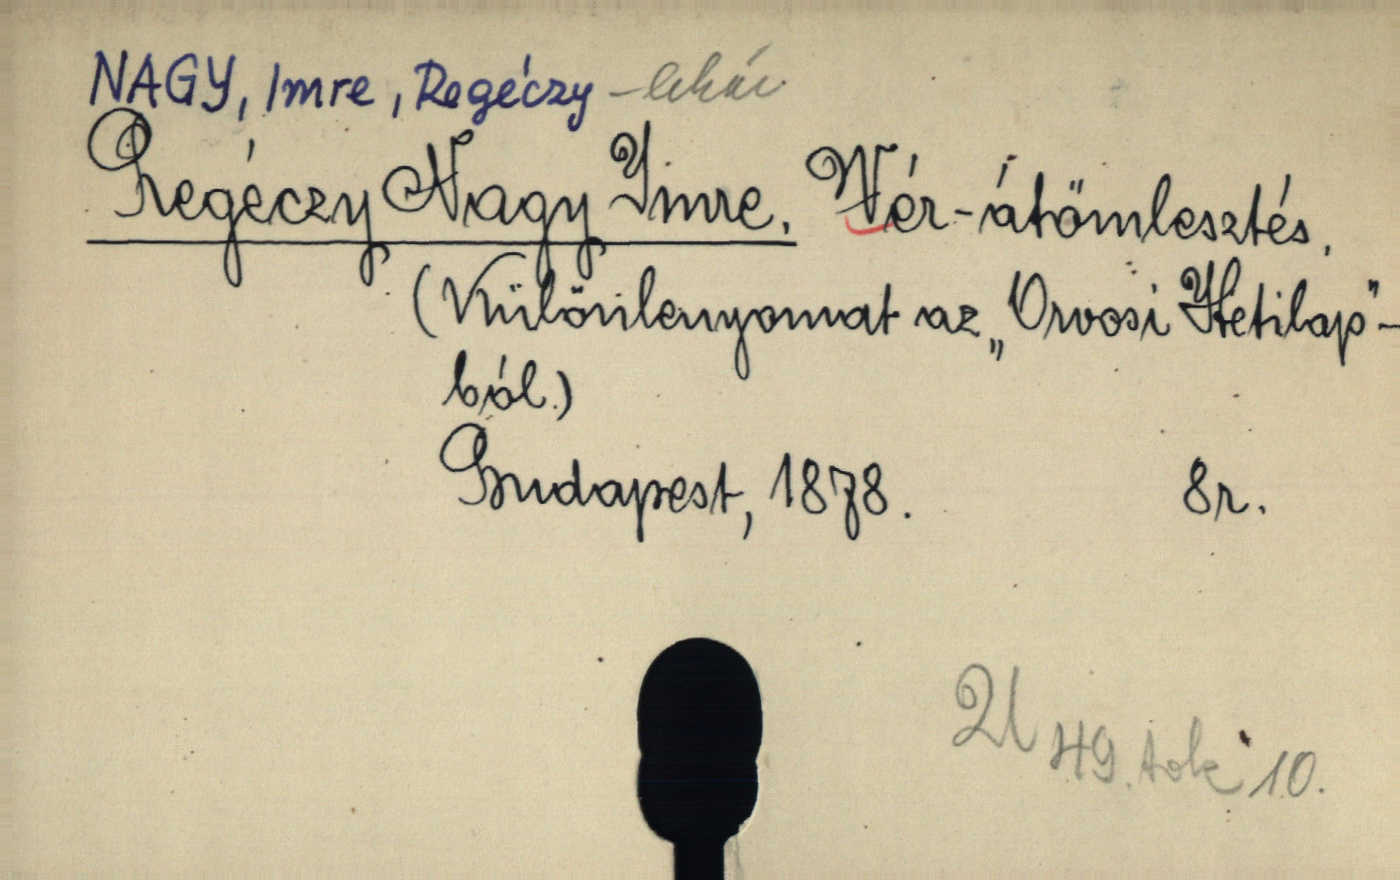 NAGY, Imre, Regéczy
Regéczy Nagy Imre. Vér-átömlesztés.
(Különlenyomat az „Orvosi Hetilap"-
ból.)
Budapest, 1878. 8r.
49. tok 10.